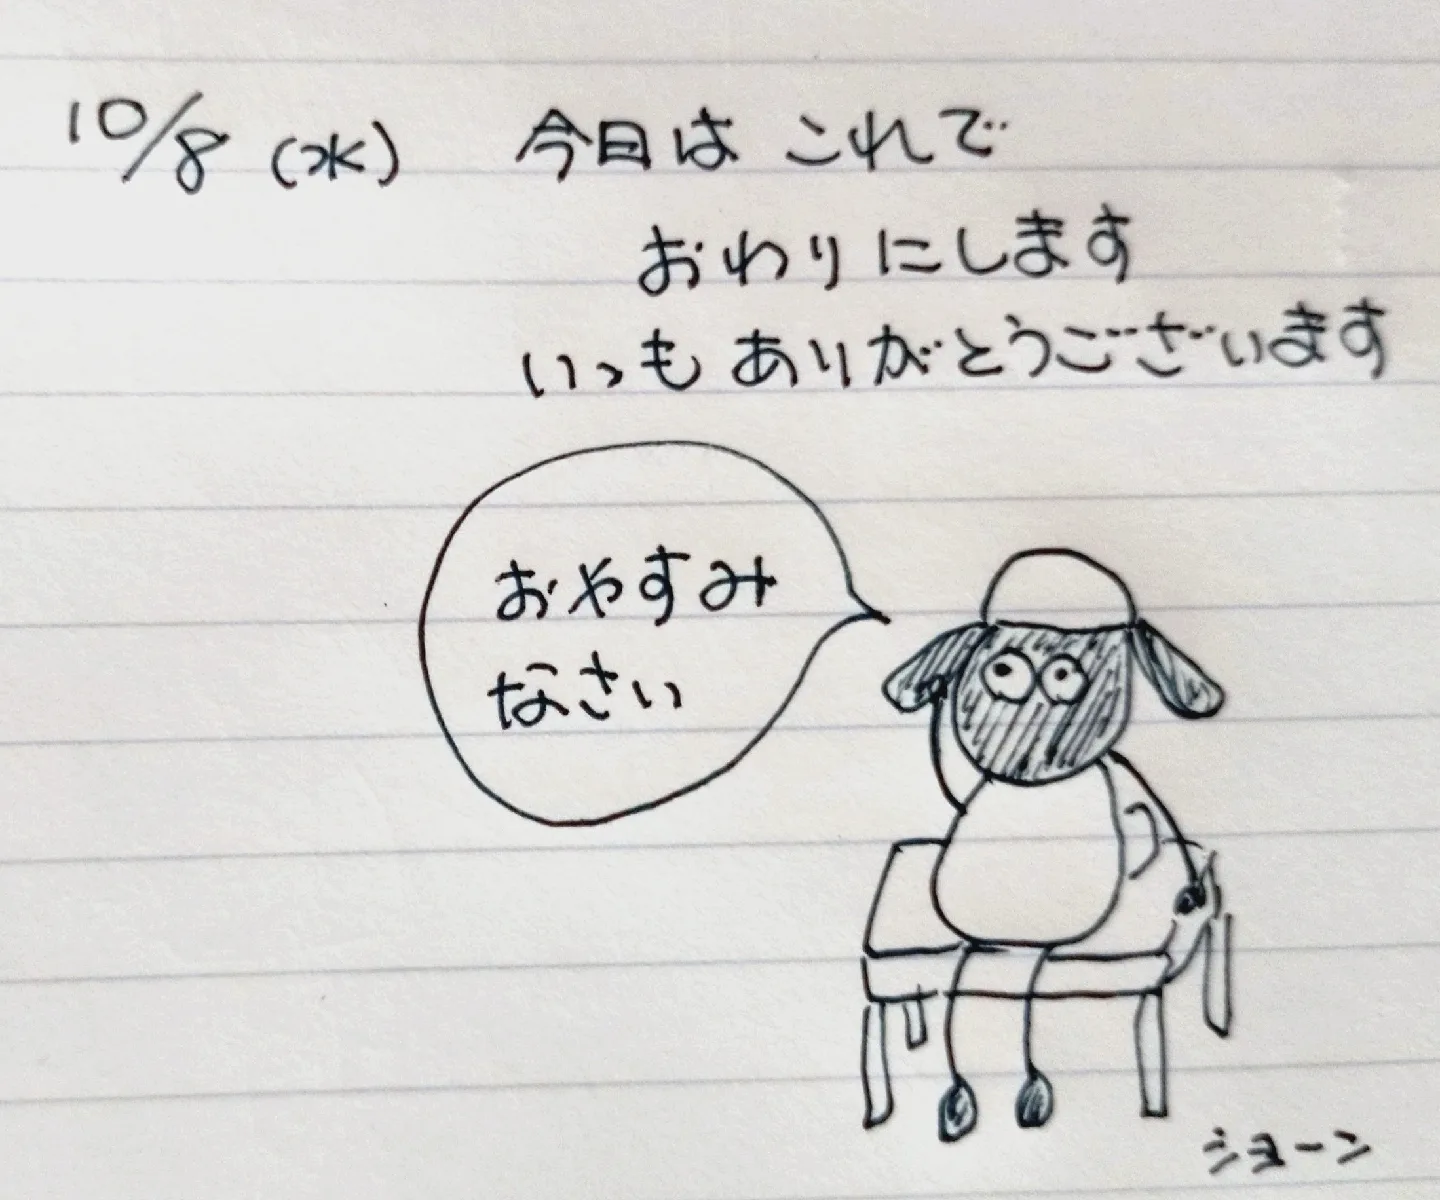 10/8(水) 今日は これで
おわりにします
いつもありがとうございます
おやすみ
なさい
ショーン